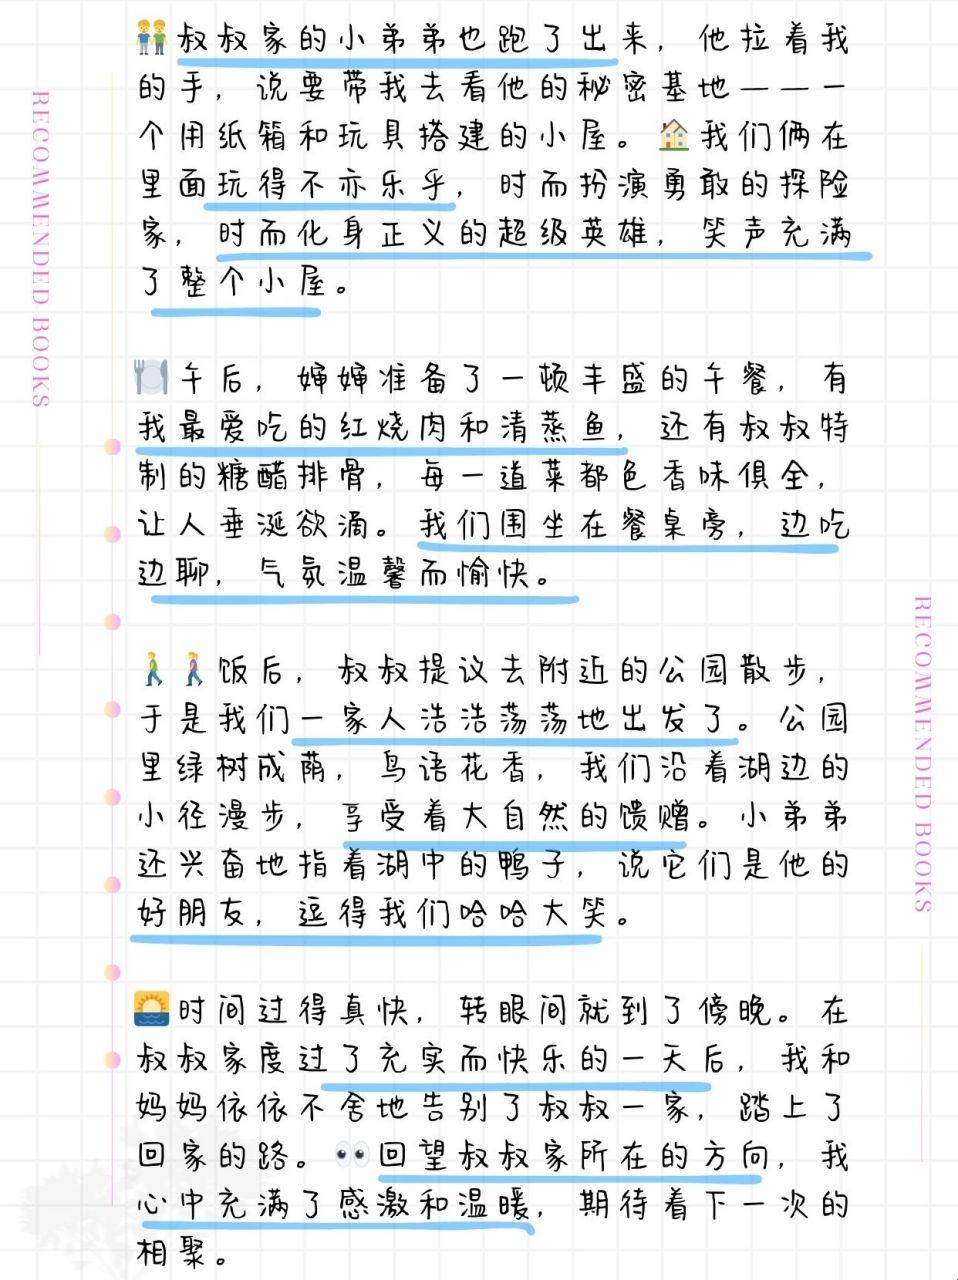 叔叔家的小弟弟也跑了出来，他拉着我
的手，说要带我去看他的秘密基地——一
个用纸箱和玩具搭建的小屋。🏠我们俩在
里面玩得不亦乐乎，时而扮演勇敢的探险
家，时而化身正义的超级英雄，笑声充满
了整个小屋。
🍽午后，婶婶准备了一顿丰盛的午餐，有
我最爱吃的红烧肉和清蒸鱼，还有叔叔特
制的糖醋排骨，每一道菜都色香味俱全，
让人垂涎欲滴。我们围坐在餐桌旁，边吃
边聊，气氛温馨而愉快。
饭后，叔叔提议去附近的公园散步，
于是我们一家人浩浩荡荡地出发了。公园
里绿树成荫，鸟语花香，我们沿着湖边的
小径漫步，享受着大自然的馈赠。小弟弟
还兴奋地指着湖中的鸭子，说它们是他的
好朋友，逗得我们哈哈大笑。
🌅时间过得真快，转眼间就到了傍晚。在
叔叔家度过了充实而快乐的一天后，我和
妈妈依依不舍地告别了叔叔一家，踏上了
回家的路。👀回望叔叔家所在的方向，我
心中充满了感激和温暖，期待着下一次的
相聚。
RECOMMENDED BOOKS
RECOMMENDED BOOKS